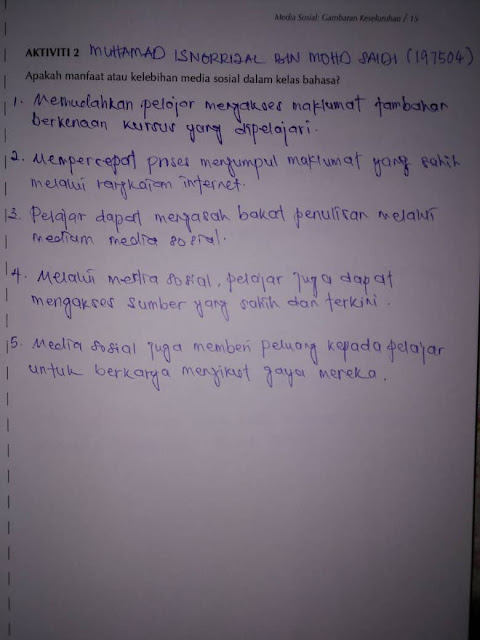 Media Sosial: Gambaran Keseluruhan / 15
AKTIVITI 2 MUHAMAD ISNORRIZAL BIN MOHD SAIDI (197504)
Apakah manfaat atau kelebihan media sosial dalam kelas bahasa?
1. Memudahkan pelajar mengakses maklumat tambahan
berkenaan kursus yang dipelajari.
2. Mempercepat proses mengumpul maklumat yang sahih
melalui rangkaian internet.
3. Pelajar dapat mengasah bakat penulisan melalui
medium media sosial.
4. Melalui media sosial, pelajar juga dapat
mengakses sumber yang sahih dan terkini.
5. Media sosial juga memberi peluang kepada pelajar
untuk berkarya mengikut gaya mereka.